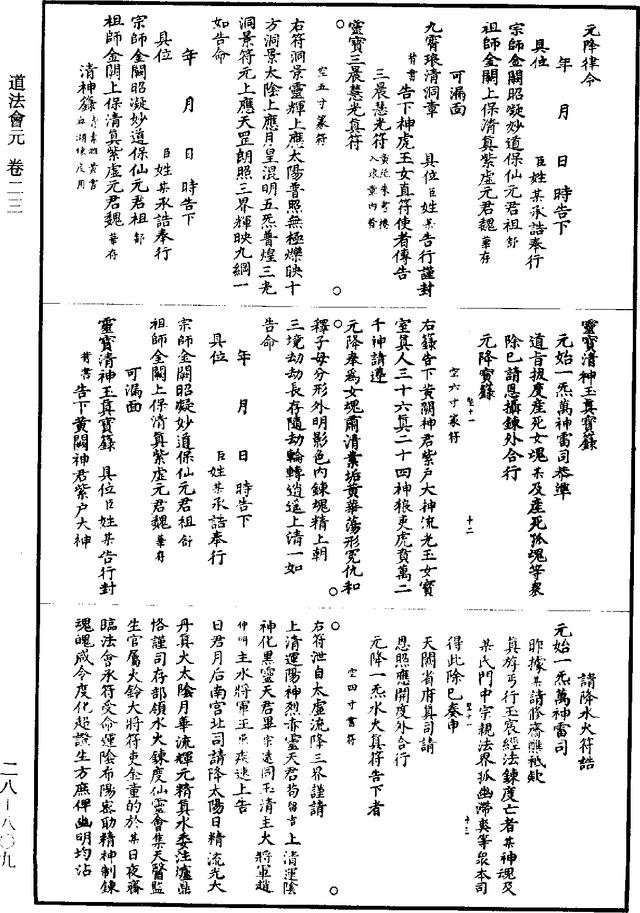 元降律令
年　月　日　時告下
具位　臣姓某承誥奉行
宗師金闕昭凝妙道保仙元君祖舒
祖師金闕上保清真紫虛元君魏華存
可漏面
九霄琅清洞章　具位臣姓某告行謹封
背書告下神虎玉女直符使者傳告
三晨慧光符
靈寶三晨慧光真符
空五寸篆符
右符洞景靈輝上應太陽普照無極爍映十
方洞景太陰上應月皇混明五炁普煌三光
洞景符元上應天罡朗照三界輝映九綱一
如告命
年　月　日　時告下
具位　臣姓某承誥奉行
宗師金闕昭凝妙道保仙元君祖舒
祖師金闕上保清真紫虛元君魏華存
清神籙
道法會元　卷二三
靈寶清神玉真寶籙
元始一炁萬神雷司恭準
道旨拔度產死女魂某及產死孤魂等衆
除已請恩攝鍊外合行
元降寶籙
空六寸篆符
右籙告下黃闕神君紫戶大神流光玉女寶
室真人三十六真二十四神狼吏虎賁萬二
千神請遵
元降奉爲女魂蕭清素垢黃華蕩形冤仇和
釋子母分形外明影色內鍊魂精上朝
三境劫劫長存隨劫輪轉逍遥上清一如
告命
年　月　日　時告下
具位　臣姓某承誥奉行
宗師金闕昭凝妙道保仙元君祖舒
祖師金闕上保清真紫虛元君魏華存
可漏面
靈寶清神玉真寶籙　具位臣姓某告行封
背書告下黃闕神君紫戶大神
請降水火符誥
元始一炁萬神雷司
昨據某請修齋醮祗於
真旂丐行玉宸經法鍊度亡者某神魂及
某氏門中宗親法界孤幽滯爽等衆本司
得此除已奏申
天闕省府真司請
恩照應開度外合行
元降一炁水火真符告下者
空四寸書符
右符泄自太虛流降三界謹請
上清運陽神烈亦靈天君苟留吉上清運陰
神化黑靈天君畢宗遠同玉清主火將軍趙
仲明主水將軍王疾速上告
日君月后南宮北司請降太陽日精流光大
丹真火太陰月華流輝元精真水委注爐鼎
恪謹司存部領水火鍊度仙靈會集天醫監
生官屬火鈴大將符吏金童的於某日夜齋
臨法會承符受命運陰布陽密助精神制鍊
魂魄咸令度化超證生方庶俾幽明均沾
二八—八〇九